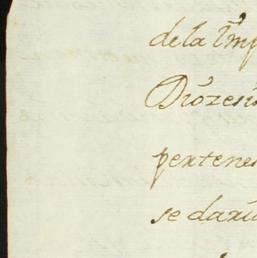 de la Imp
Diozesis
pertene
se daru